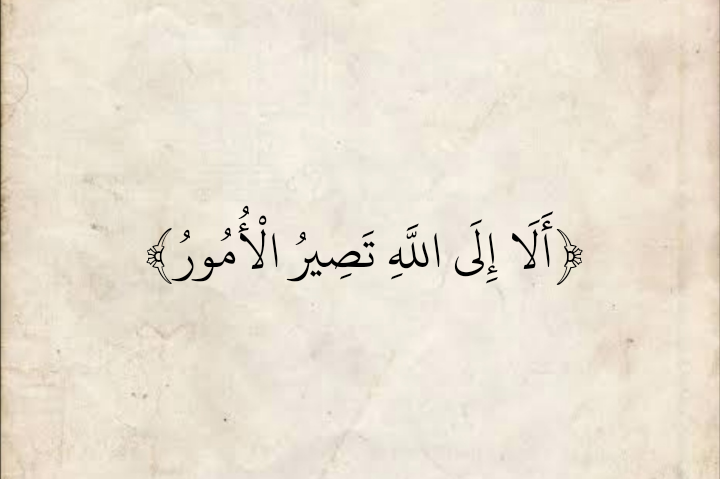 ﴿أَلَا إِلَى اللَّهِ تَصِيرُ الْأُمُورُ﴾